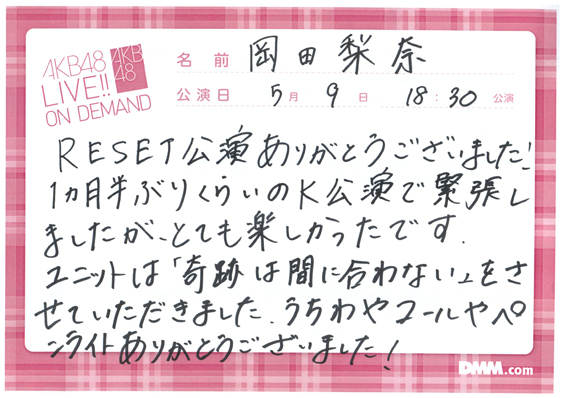 AKB48
LIVE!!
ON DEMAND
AKB
48
名前 岡田梨奈
公演日 5月 9日 18:30 公演
RESET公演ありがとうございました!
1ヵ月半ぶりくらいのK公演で緊張し
ましたが、とても楽しかったです.
ユニットは「奇跡は間に合わない」をさ
せていただきました.うちわやコールやペ
ンライトありがとうございました!
DMM.com